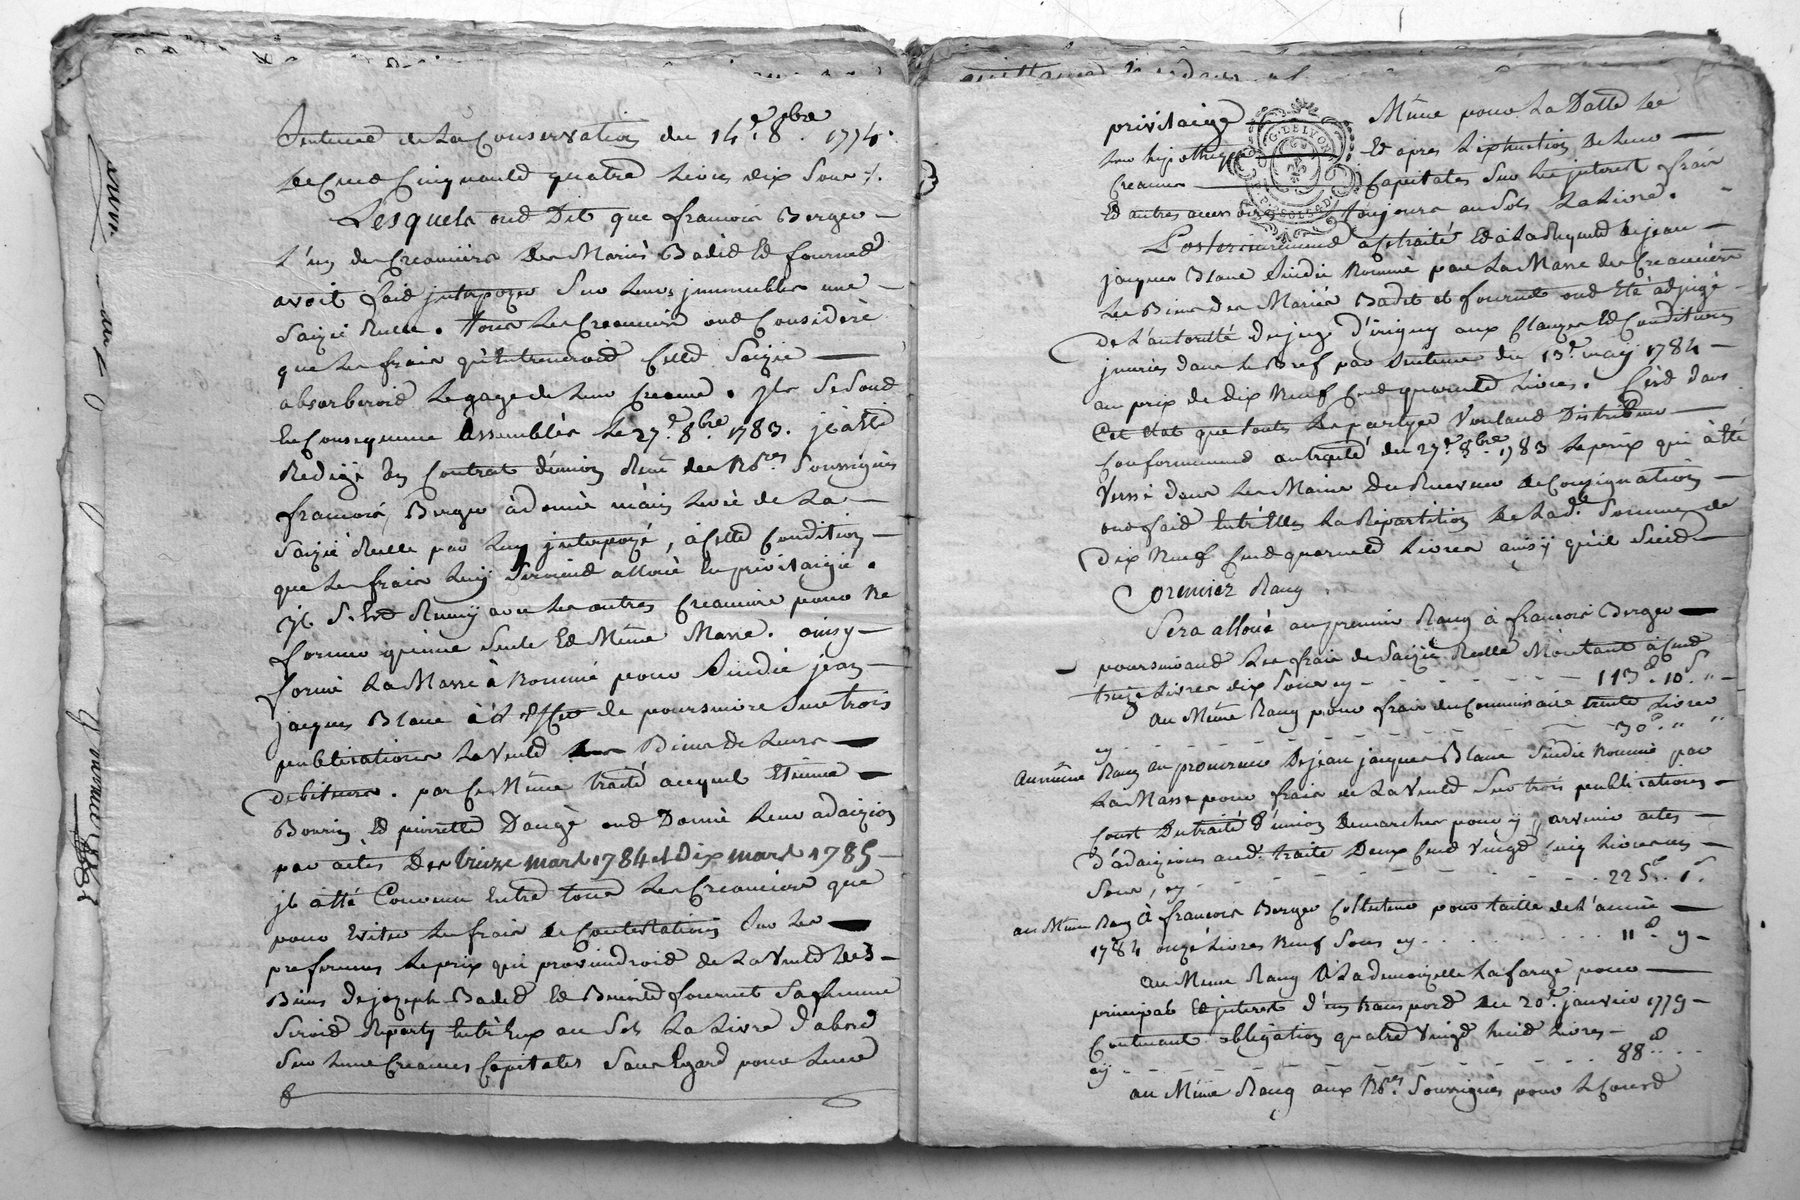 Sentence de La Conservation du 14e 8bre 1774.
de Cent Cinquante quatre Livres dix Sous
Lesquels ont Dit que francois Berger
L'un des Creanciers des Mariés Badit Et fournet
avoit fait interpozer Sur Leurs jmmeubles une
Saizie Reelle. tous Les Creanciers ont Consideré
que Les frais qu'Entraineroit Cette Saizie
absorberoit Le gage de Leur Creance. jls Se Sont
En Consequence Assemblés Le 27e 8bre 1783. jl a été
Redigé un Contrat d'union Reçu des Nres Soussignés
francois Berger à donné main Levée de La
Saizie Reelle par Luy interpozé, à Cette Condition
que Les frais Luy Seroient alloué En privilaigié.
jl S'Est Reuny avec Les autres Creanciers pour Ne
former qu'une Seule Et Même Masse. ainsy
formé La Masse à Nommé pour Sindic jean
jacques Blanc à L'Effet de poursuivre Sur trois
publications La Vente des Biens de Leurs
debiteurs. par Ce Même traité auquel Etienne
Bourin Et pierrette Daugé ont Donné Leur adaizion
par actes Des treize mars 1784 et Dix mars 1785
jl a été Convenu Entre tous Les Creanciers que
pour Eviter Les frais de Contestations Sur Les
preferences Le prix qui proviendroit de La Vente des
Biens de jozeph Badit Et Benoite fournet Sa femme
Seroit Reparty Entr'Eux au Sol La Livre d'abord
Sur Leurs Creances Capitales Sans Egard pour Leur
privilaige Même pour La Datte de
Leur hipotheque Et apres L'extinction de Leur
Creances Capitales Sur Les interest frais
Et autres accessoires toujours au Sols La Livre.
G. DE LYON
Posterieurement a Ce traité Et à La Requete de jean
jacques Blanc Sindic Nommé par La Masse des Creanciers
Les Biens des Mariés Badit et fournet ont Eté adjugé
De L'autorité du juge d'irigny aux Clauzes Et Conditions
jnserées dans Le Bref par Sentence du 13e may 1784
au prix de dix Neuf Cent quarante Livres. C'est dans
Cet Etat que toutes Les partyes Voulant Distribuer
Conformement au traité du 27e 8bre 1783 Le prix qui à été
Versé dans Les Mains Du Receveur de Consignations
ont fait Entr'Elles La Repartition de Lade Somme de
Dix Neuf Cent quarante Livres ainsy qu'il Suit
premier Rang
Sera alloué au premier Rang à francois Berger
poursuivant Les frais de Saizie Reelle Montant à Cent
treize Livres dix Sous cy 113. 10.
au Même Rang pour frais du Commissaire trente Livres
cy 30
au même Rang au procureur De jean jacques Blanc Sindic Nommé par
La Masse pour frais de La Vente Sur trois publications
Coust Du traité d'union demarches pour y parvenir actes
d'adaizions aud. traité Deux Cent Vingt Cinq Livres un
Sous, cy 225. 1.
au Même Rang à francois Berger Collecteur pour taille de L'année
1784 onze Livres Neuf Sous cy 11. 9
au Même Rang à La demoizelle Lafarge pour
principal Et interest d'un transport du 20e janvier 1779
Contenant obligation quatre Vingt huit Livres
cy 88
au Même Rang aux Nres Soussignés pour Le Coust